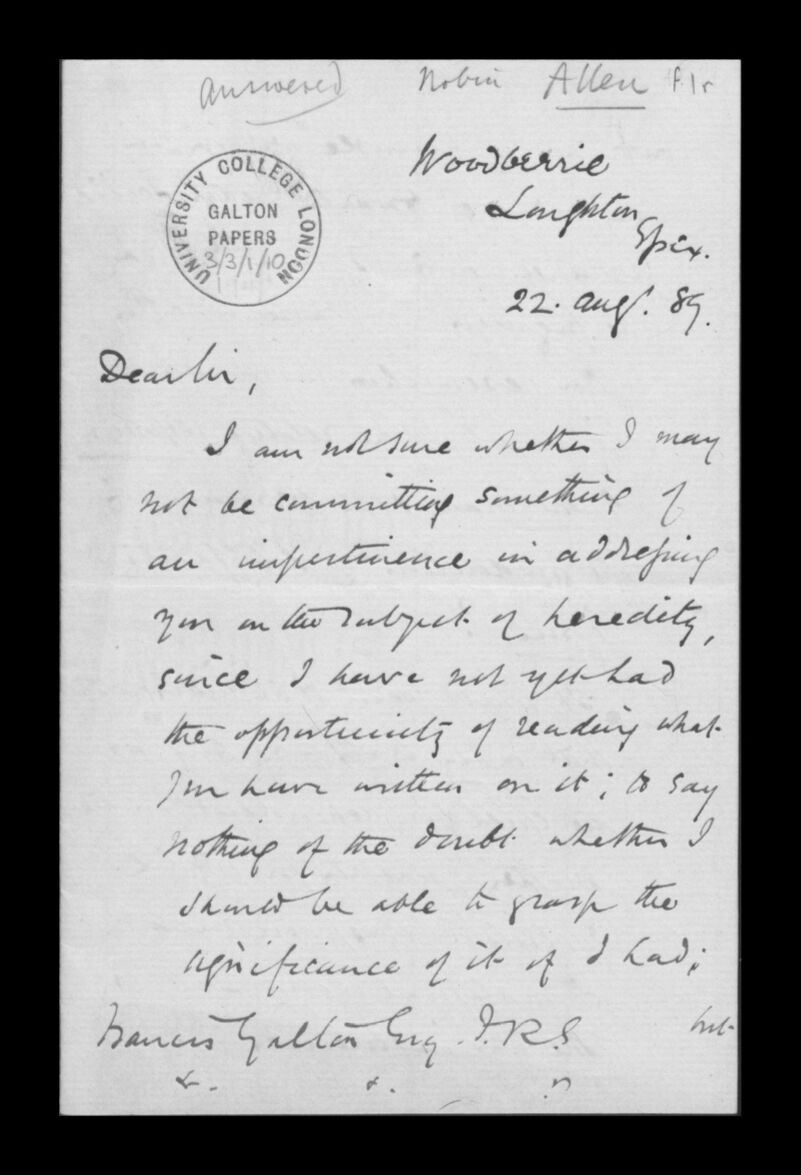 answered Robin Allen
Woodberrie
Loughton
Essex.
22. Augt. 89.
UNIVERSITY COLLEGE LONDON
GALTON
PAPERS
3/3/1/10
Dear Sir,
I am not sure whether I may
not be committing something of
an impertinence in addressing
you on the subject of heredity,
since I have not yet had
the opportunity of reading what
you have written on it; to say
nothing of the doubt whether I
should be able to grasp the
significance of it if I had;
but
Francis Galton Esq. F.R.S